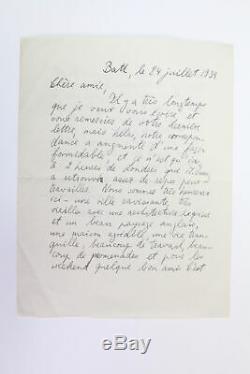 Bath, le 24 juillet 1939
Chère amie,
Il y a très longtemps
que je veux vous écrire et
vous remercier de votre dernière
lettre, mais hélas, notre correspon-
dance a augmenté d'une façon
formidable et je n'est qu'ici
à 2 heures de Londres que
a retrouvé assez de repos pour
travailler. Nous sommes très heureux
ici - une ville ravissante, très
vieille avec une architecture exquise
et un beau paysage anglais,
une maison agréable, une vie tran-
quille, beaucoup de travail, beau-
coup de promenades et pour les
weekend quelque bon amis. C'est